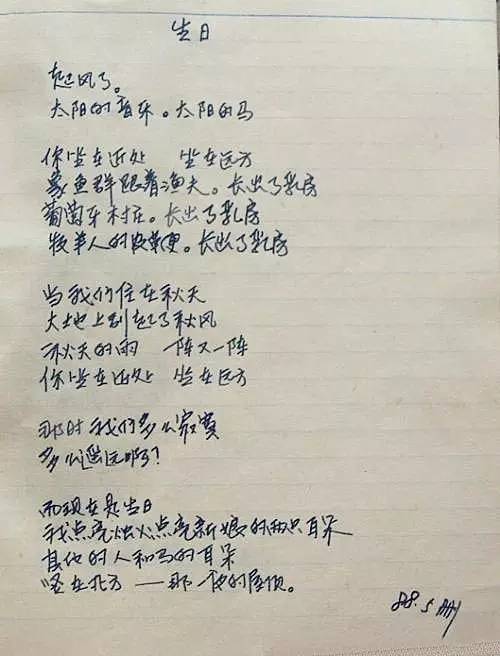 生日
起风了。
太阳的音乐。太阳的马
你坐在近处 坐在远方
象鱼群跟着渔夫。长出了乳房
葡萄车村庄。长出了乳房
牧羊人的皮革更。长出了乳房
当我们住在秋天
大地上刮起了秋风
秋天的雨 一阵又一阵
你坐在近处 坐在远方
那时我们多么寂寞
多么遥远啊？
而现在是生日
我点亮烛火点亮新娘的两只耳朵
其他的人和马的耳朵
竖在北方——那一夜的屋顶。
88.5